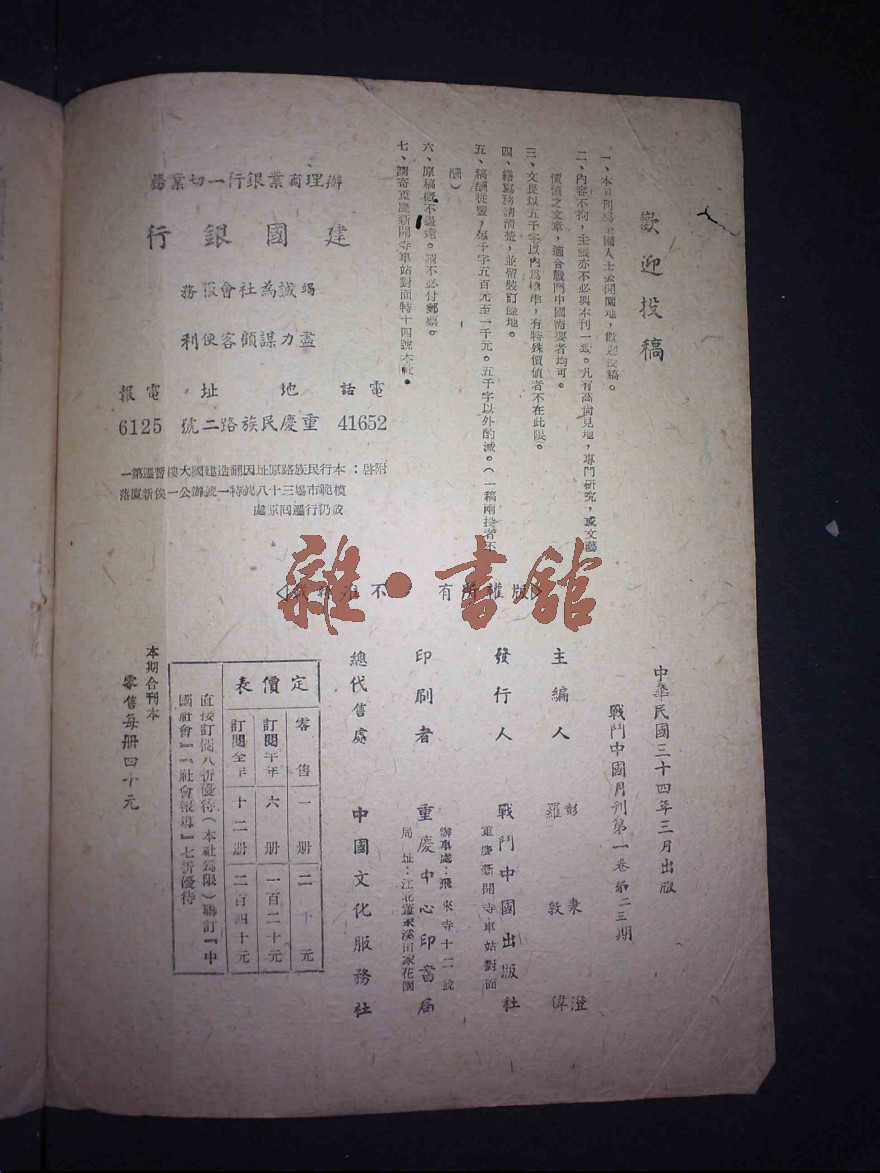 歡迎投稿
一、本月刊為全國人士公開園地,歡迎投稿。
二、內容不拘,主張亦不必與本刊一致。凡有高尚見地,專門研究,或文藝
價值之文章,適合戰鬥中國需要者均可。
三、文長以五千字以內爲標準,有特殊價値者不在此限。
四、繕寫務請清楚,並留裝訂餘地。
五、稿酬從豐,每千字五百元至一千元。五千字以外酌減。(一稿兩投者不
酬)
六、原稿概不退還。請不必付郵票。
七、請寄重慶新開寺車站對面特十四號本社。
辦理商業銀行一切業務
建國銀行
竭誠為社會服務
盡力謀顧客便利
電話 地址 電報
41652 重慶民族路二號 6125
附啓:本行民族路原址因翻造建國大樓暫遷第一
模範市場三十八號特一號辦公一俟新廈落
成仍行遷回原處
版權所有 不准
中華民國三十四年三月出版
戰鬥中國月刊第一卷第二三期
主編人 彭東澄
羅敦偉
發行人 戰鬥中國出版社
重慶新開寺車站對面
印刷者 重慶中心印書局
辦事處:飛來寺十二號
局址:江北董家溪田家花園
總代售處 中國文化服務社
定價表
零售 一册 二十元
訂閱半年 六册 一百二十元
訂閱全年 十二册 二百四十元
直接訂閱八折優待(本社為限)聯訂『中
國社會』『社會報導』七折優待
本期合刊本
零售每册四十元
雜·書館